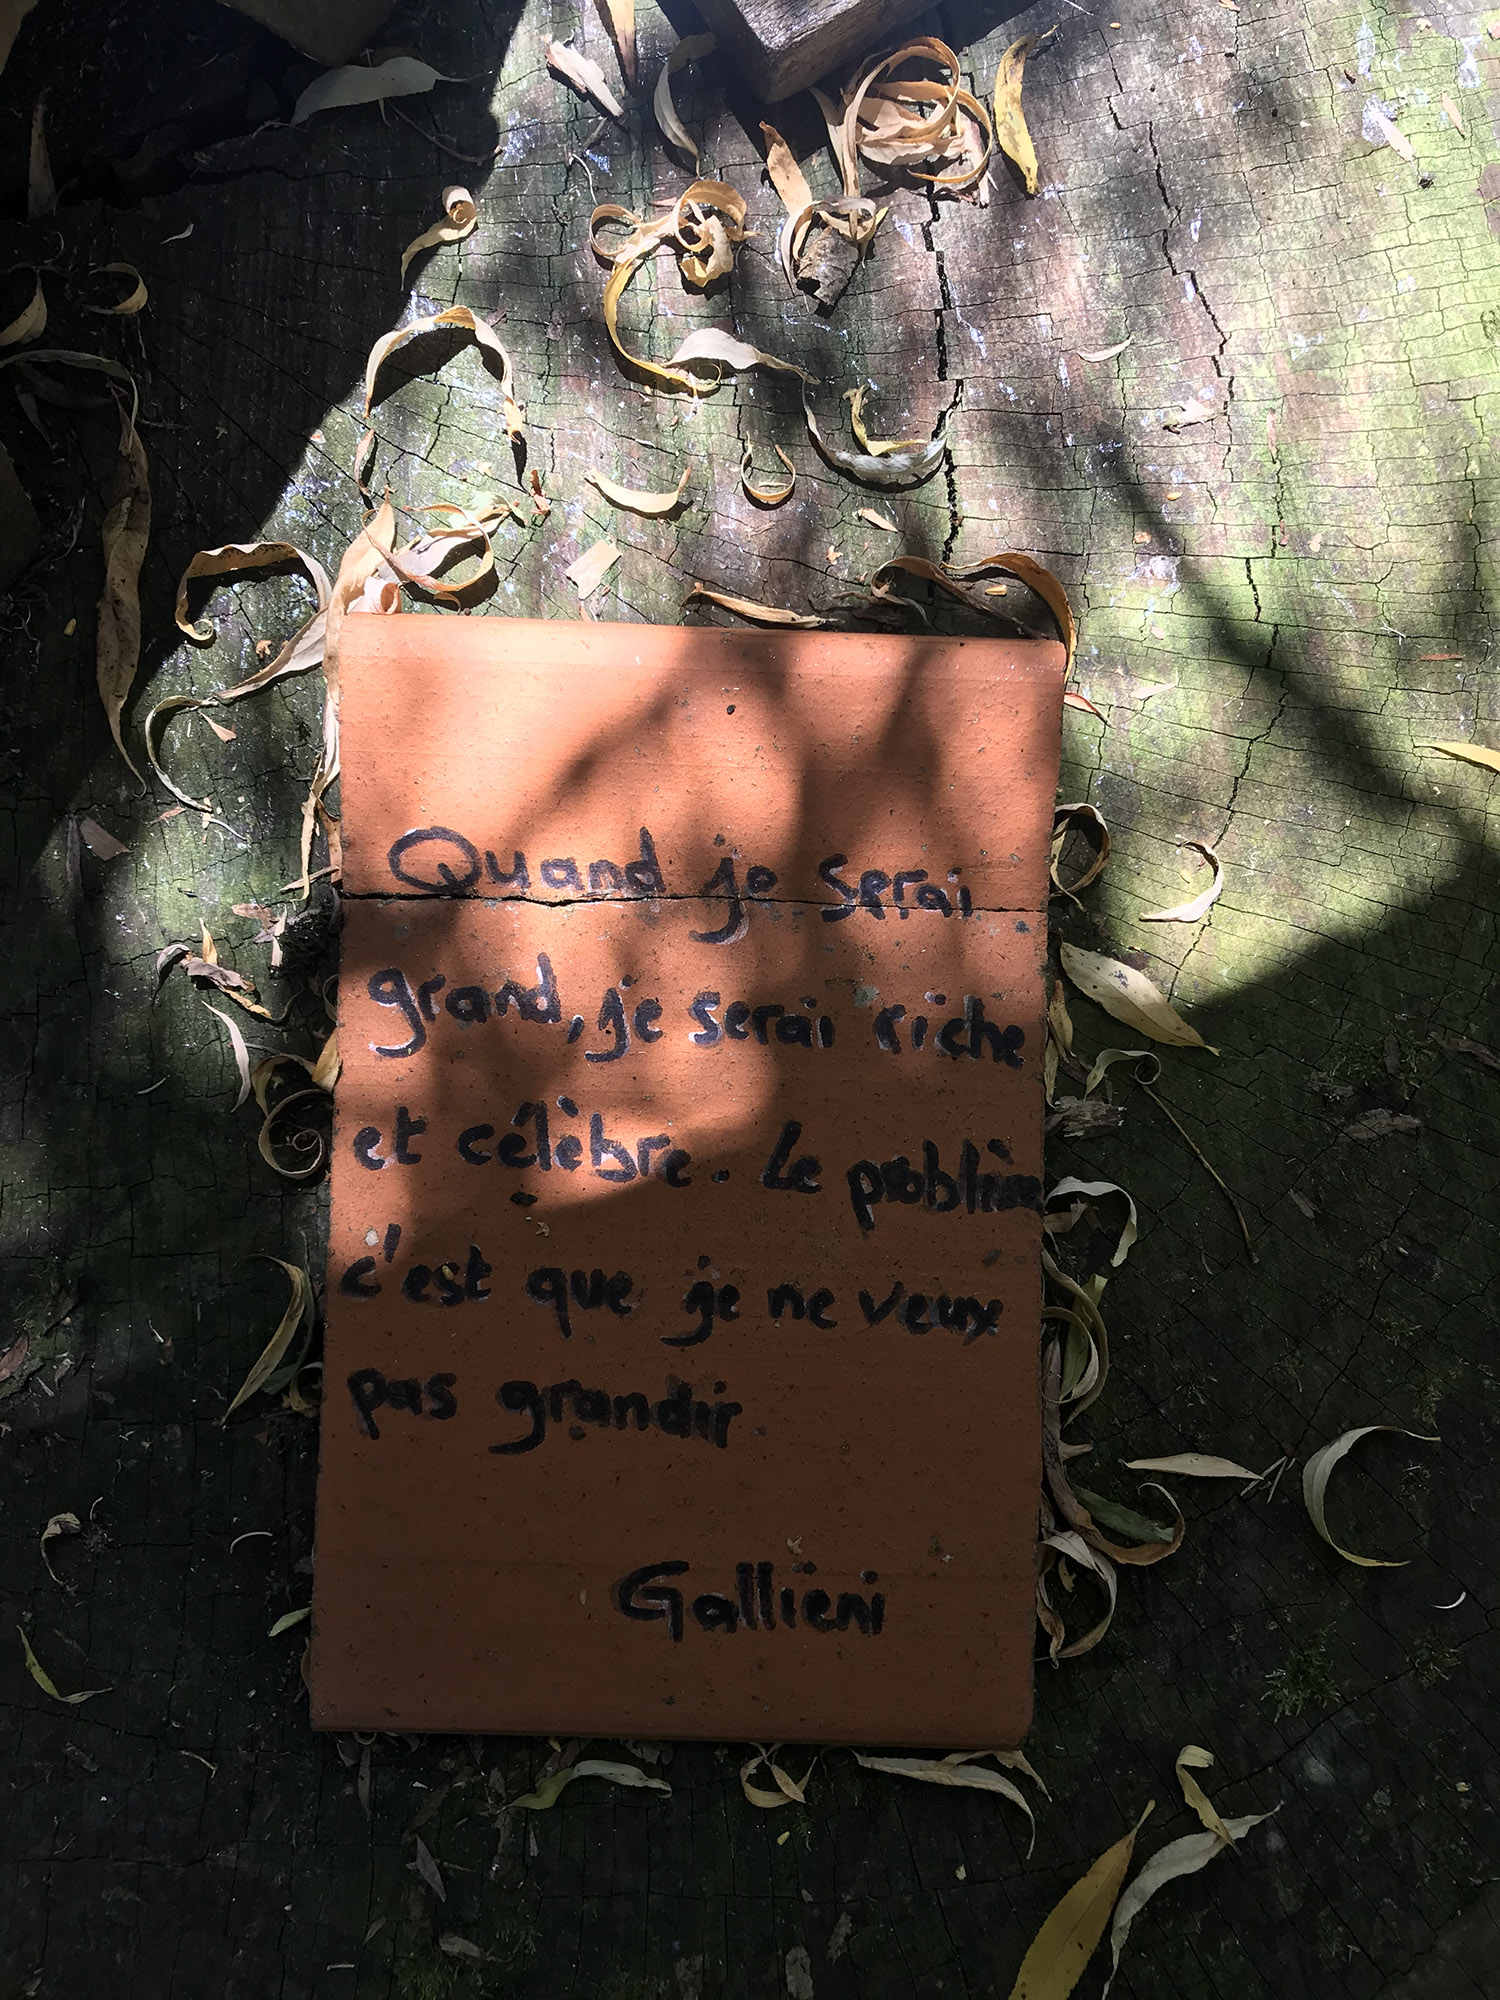 Quand je serai
grand, je serai riche
et célèbre. Le problème
c'est que je ne veux
pas grandir.
Gallïeni